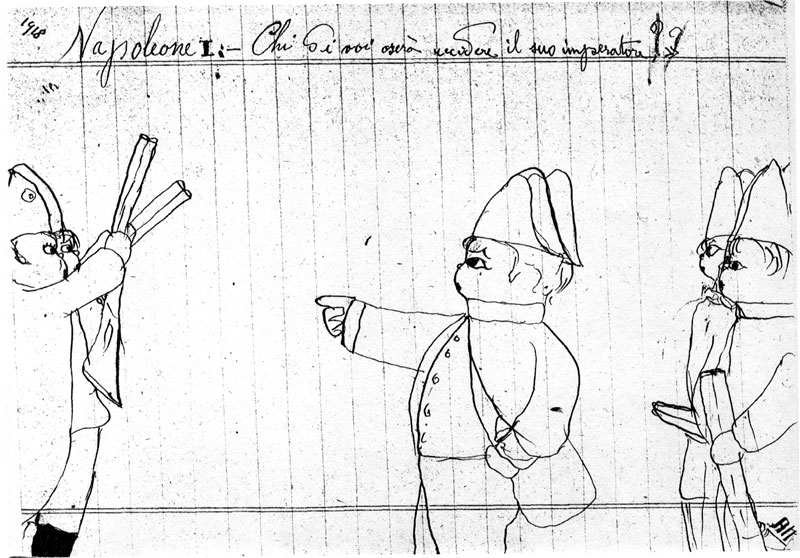 1918
Napoleone I:— Chi di voi oserà uccidere il suo imperatore!?